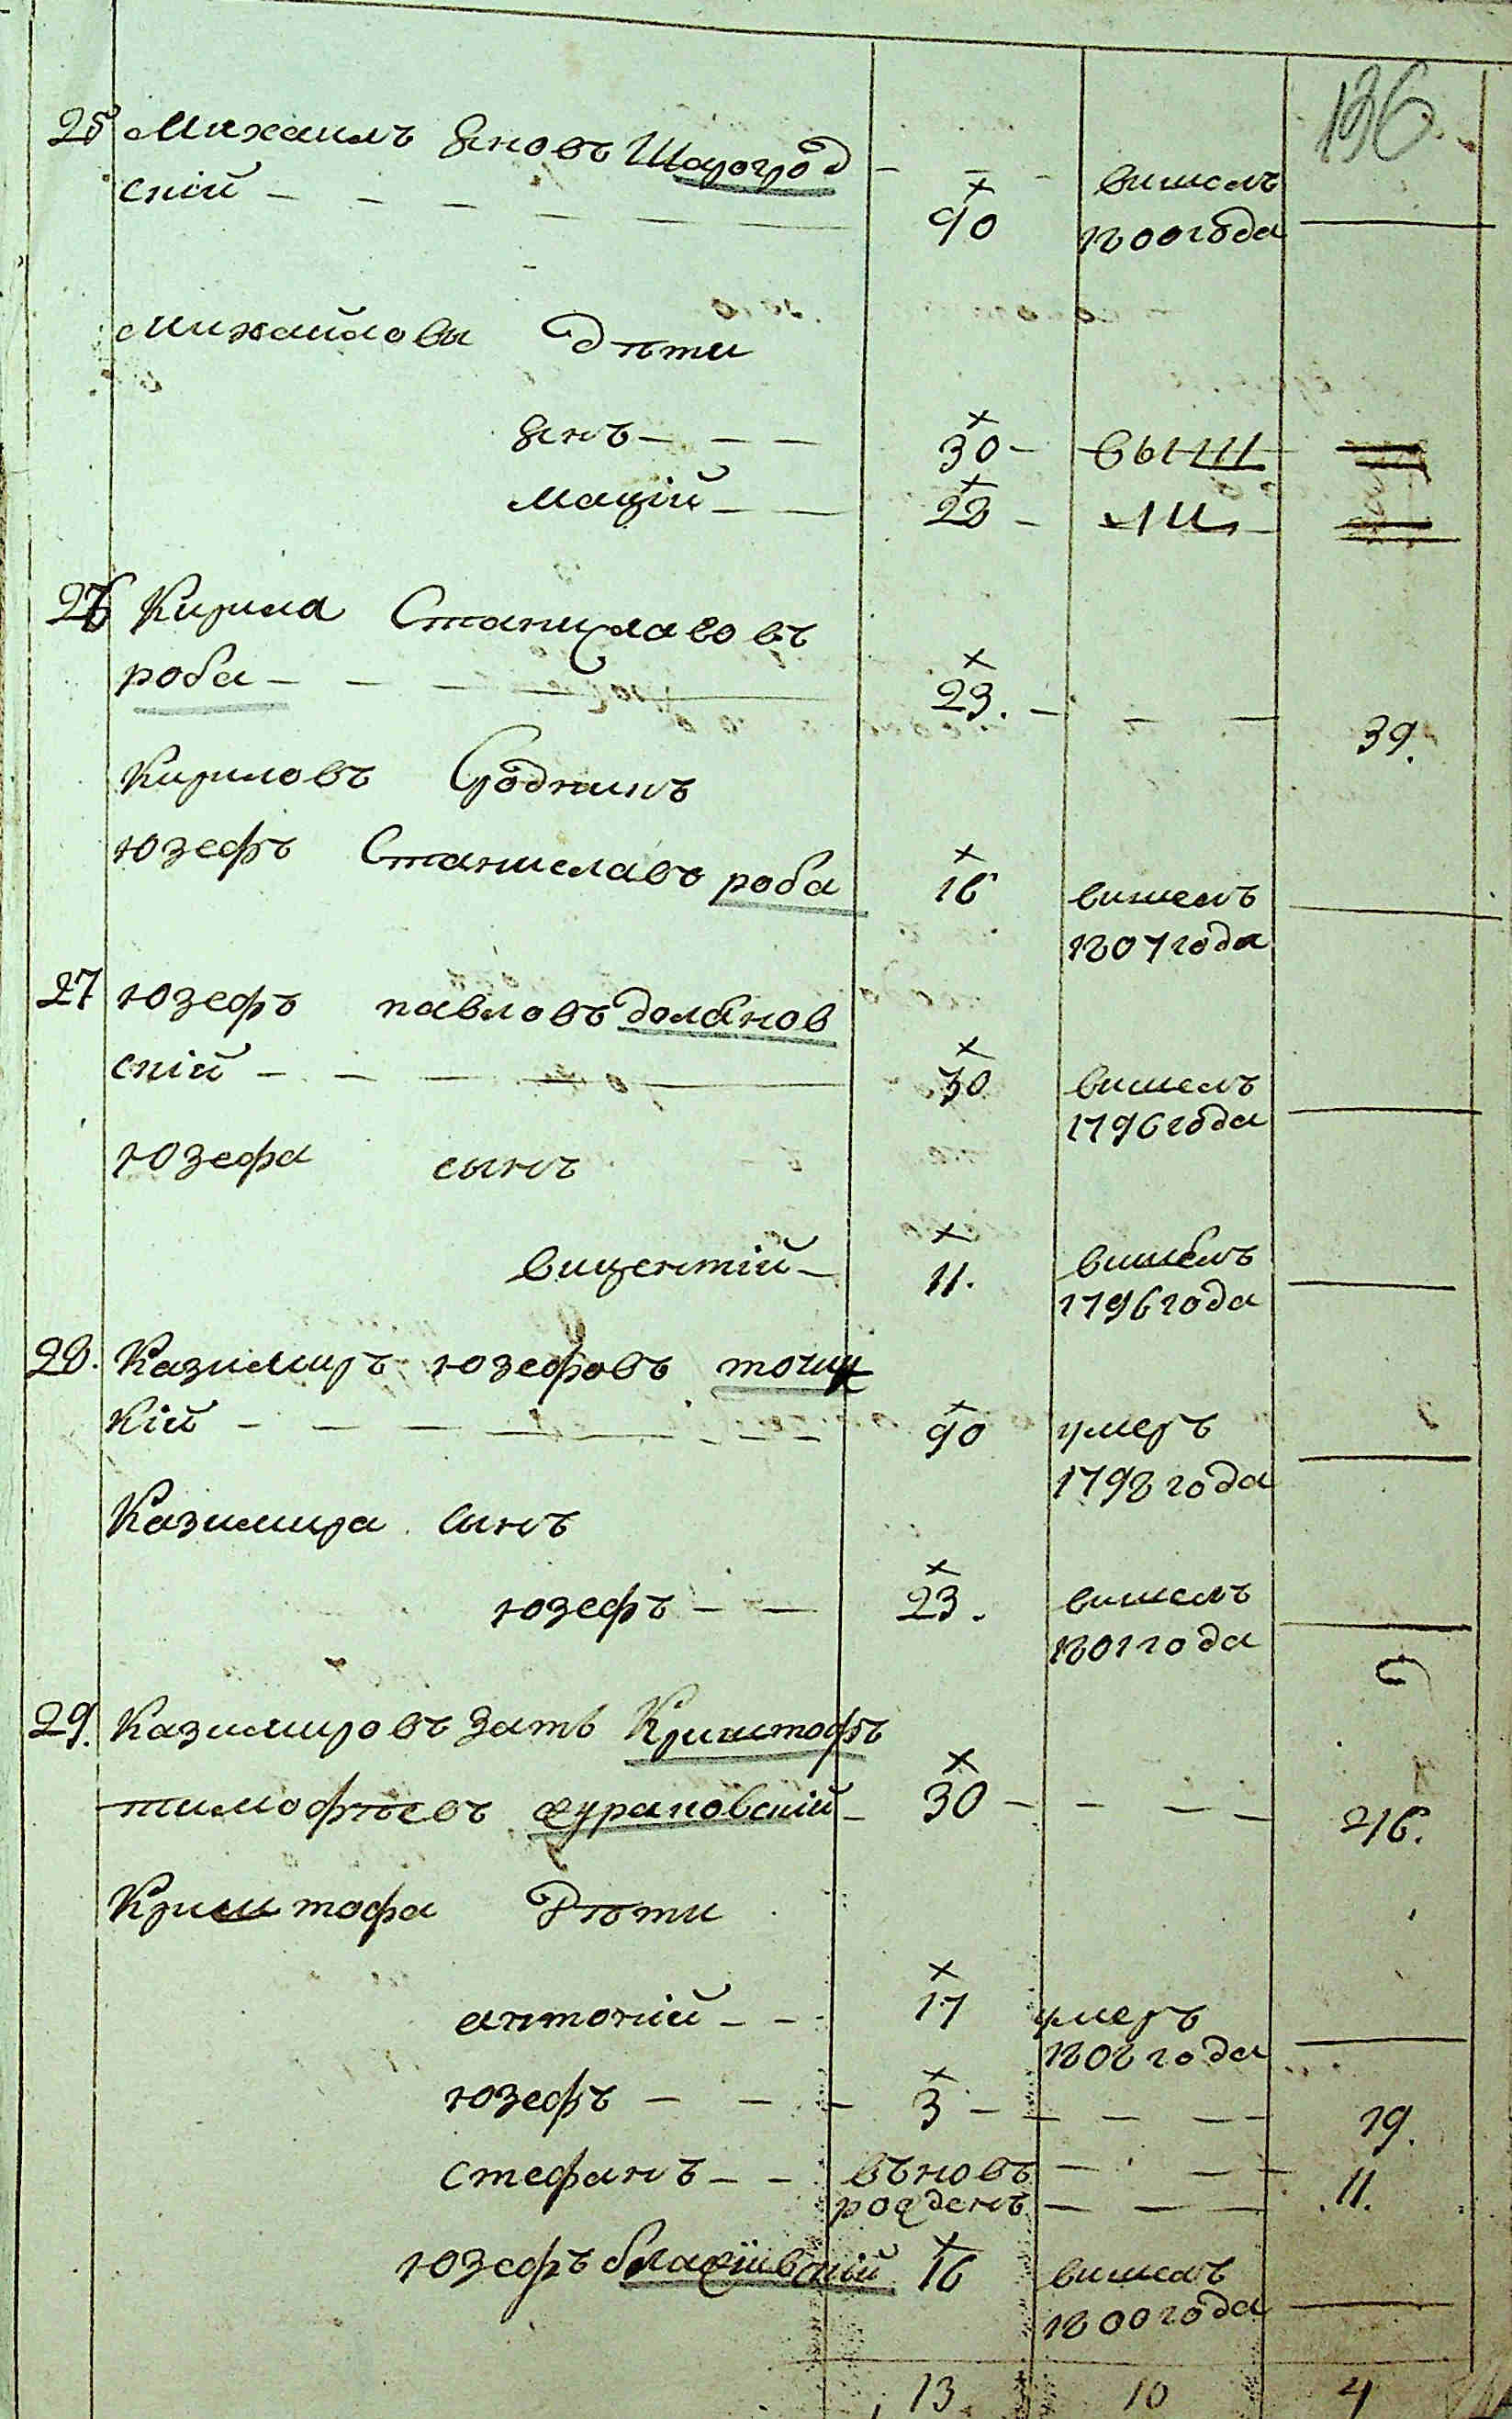 136.
25 Михаилъ Яновъ Шарогрод
скій - - - 90 вишелъ
1800 года
Михайловы дѣти
Янъ - - - 30 - выш
Мацій - - 28 - ли
26 Кирила Станиславовъ
роба - - - 23. - - - 39.
Кириловъ Сродникъ
юзефъ Станиславъ роба 16 вишелъ
1807 года
27 юзефъ павловъ доланов
скій - - - 30 вишелъ
1796 года
юзефа сынъ
вицентій - 11. вишелъ
1796 года
28. Казимиръ юзефовъ точиц
кій - - - 40 умеръ
1798 года
Казимира сынъ
юзефъ - - 23. вишелъ
1801 года
29. Казимировъ зать Криштофъ
тимофѣевъ журавовскій - 30 - - - 46.
Криштофа Дѣти
антоній - - 17 умеръ
1808 года
юзефъ - - - 3 - - - 19.
стефанъ - - въновъ - - -
рожденъ - - - 11.
юзефъ блажіивскій 16 вишелъ
1800 года
13 10 4